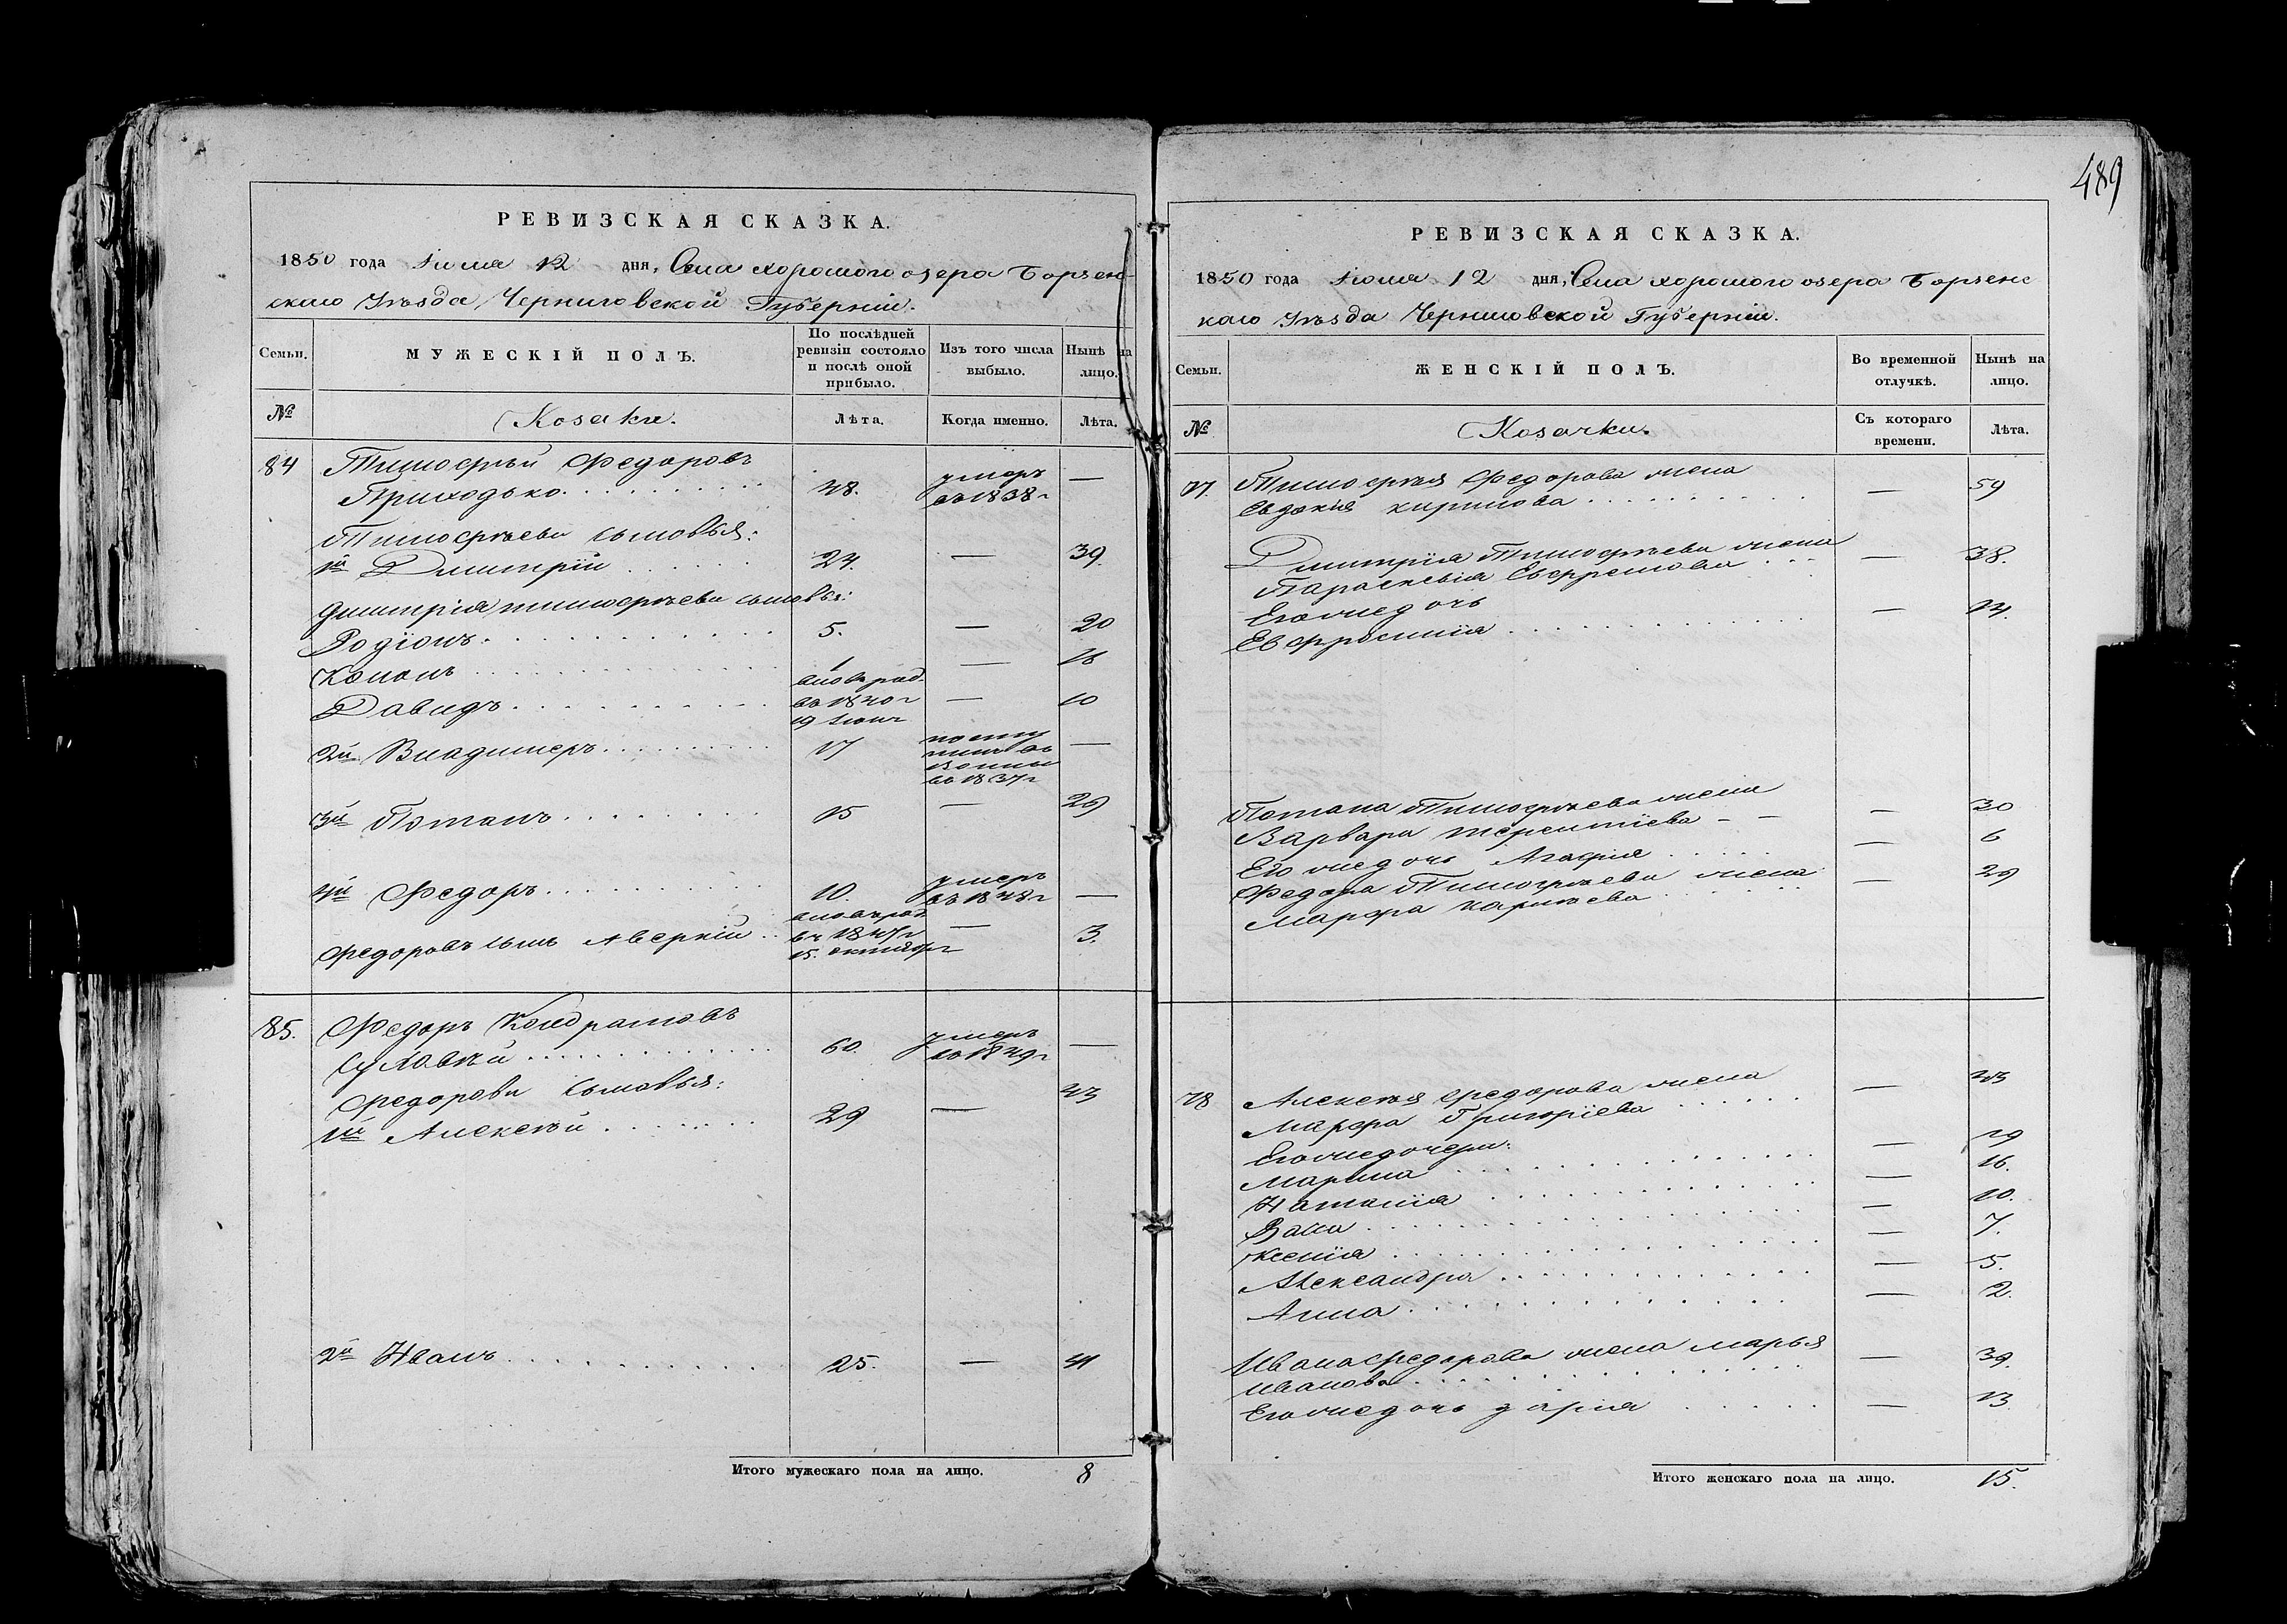 489
РЕВИЗСКАЯ СКАЗКА.
1850 года Іюля 12 дня, Села хорошого озера Борзен-
скаго Уѣзда Черниговской Губерніи.
Семьи. МУЖЕСКІЙ ПОЛЪ. По послѣдней ревизіи состояло и послѣ оной прибыло. Изъ того числа выбыло. Нынѣ на лицо.
№ Козаки. Лѣта. Когда именно. Лѣта.
84 Тимофѣй Федоровъ
Приходько 48. умеръ въ 1838 г —
Тимофѣевы сыновья:
1й Дмитрій 24. — 39.
Дмитрія Тимофѣева сыновья:
Родіонъ 5. — 20
Кононъ 1 — 16
Давидъ вновь рожд. въ 1840 г — 10
2й Владимеръ 17 въ 1837 г —
3й Потапъ 15 — 29
4й Федоръ 10. умеръ въ 1848 г —
Федоровъ сынъ Аверкій вновь рожд. въ 1847 г 15. октября — 3.
85. Федоръ Кондратовъ
Суховѣй 60. умеръ въ 1849 г —
Федоровы сыновья:
1й Алексѣй 29 — 43
2й Иванъ 25. — 41
Итого мужескаго пола на лицо. 8
РЕВИЗСКАЯ СКАЗКА.
1850 года Іюля 12 дня, Села хорошого озера Борзенс
каго Уѣзда Черниговской Губерніи.
Семьи. ЖЕНСКІЙ ПОЛЪ. Во временной отлучкѣ. Нынѣ на лицо.
№ Козачки. Съ котораго времени. Лѣта.
Тимофѣя Федорова жена
Евдокія Кирилова — 59
Дмитрія Тимофѣева жена
Параскевія Ефремова — 38.
Егожe дочь
Евфросинія — 14.
Потапа Тимофѣева жена
Варвара Терентіева — 30
Его же дочь Агафія — 6
Федора Тимофѣева жена
Марфа — 29
78 Алексѣя Федорова жена
Марфа Григоріева — 43
Егоже дочери:
Марина — 19
Наталія — 16.
— 10.
Ксенія — 7.
Александра — 5.
Анна — 2.
Ивана Федорова жена марья
Иванова — 39.
Егоже дочь дарія — 13
Итого женскаго пола на лицо. 15.